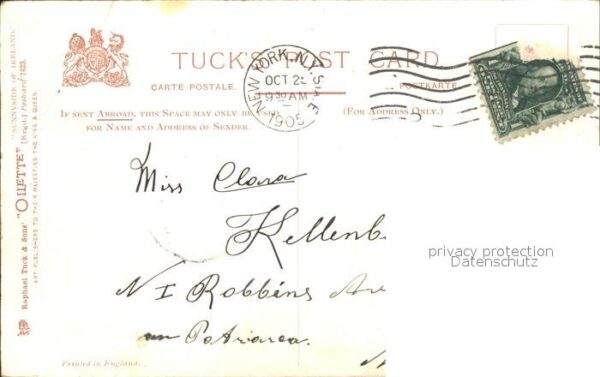 TUCK'S POST CARD.
CARTE POSTALE.
POSTKARTE
NEW YORK, N.Y.
OCT 25
9 30 AM
1905
IF SENT ABROAD, THIS SPACE MAY ONLY BE USED
FOR NAME AND ADDRESS OF SENDER.
(FOR ADDRESS ONLY.)
Miss Clara
Kellenb
privacy protection
Datenschutz
N I Robbins Ave
Printed in England.
Raphael Tuck & Sons' "OILETTE" [Regd.] Postcard
"SUNNYSIDE OF IRELAND."
ART PUBLISHERS TO THEIR MAJESTIES THE KING & QUEEN.